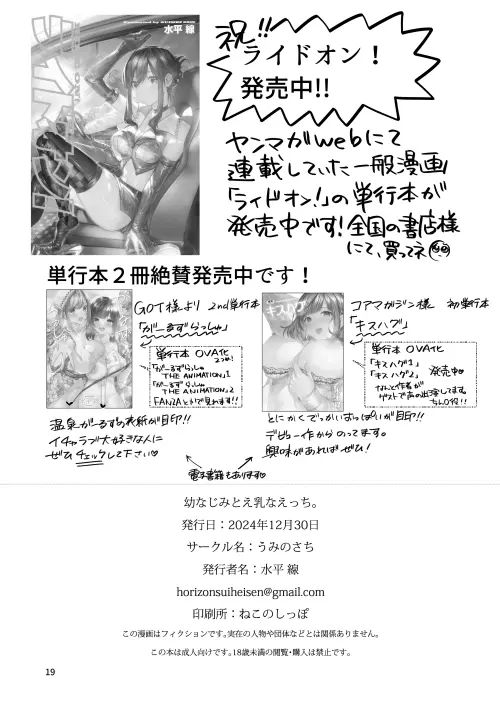 水平 線
祝!!
ライドオン！
発売中!!
ヤンマガwebにて
連載していた一般漫画
「ライドオン!」の単行本が
発売中です!全国の書店様
にて、買ってネ
単行本２冊絶賛発売中です！
GOT様より 2nd単行本
「がーるずらっしゅ」
単行本 OVA化
「がーるずらっしゅ
THE ANIMATION」1
「がーるずらっしゅ
THE ANIMATION」2
FANZAとかで見れます!!
温泉がーるずの表紙が目印!!
イチャラブ大好きな人に
ぜひチェックして下さい♡
コアマガジン様 初単行本
「キスハグ」
キスハグ
単行本 OVA化
「キスハグ1」
「キスハグ2」 発売中♡
なんと作者が
ゲストで声の出演してます。
とにかくでっかいおっぱいが目印!!
デビュー作からのってます。
興味があればぜひ!
電子書籍もあります♡
幼なじみとえ乳なえっち。
発行日：2024年12月30日
サークル名：うみのさち
発行者名：水平 線
horizonsuiheisen@gmail.com
印刷所：ねこのしっぽ
この漫画はフィクションです。実在の人物や団体などとは関係ありません。
この本は成人向けです。18歳未満の閲覧・購入は禁止です。
19